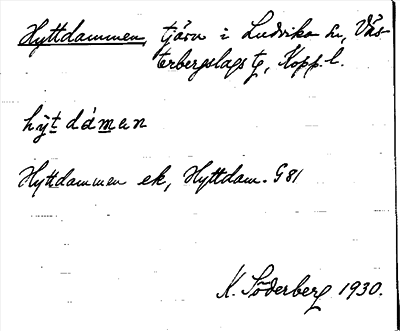 Hyttdammen, tjärn i Ludvika sn, Väs-
terbergslags tg, Kopp. l.
hy̆t dámen
Hyttdammen ek, Hyttdam. G 81
K. Söderberg 1930.